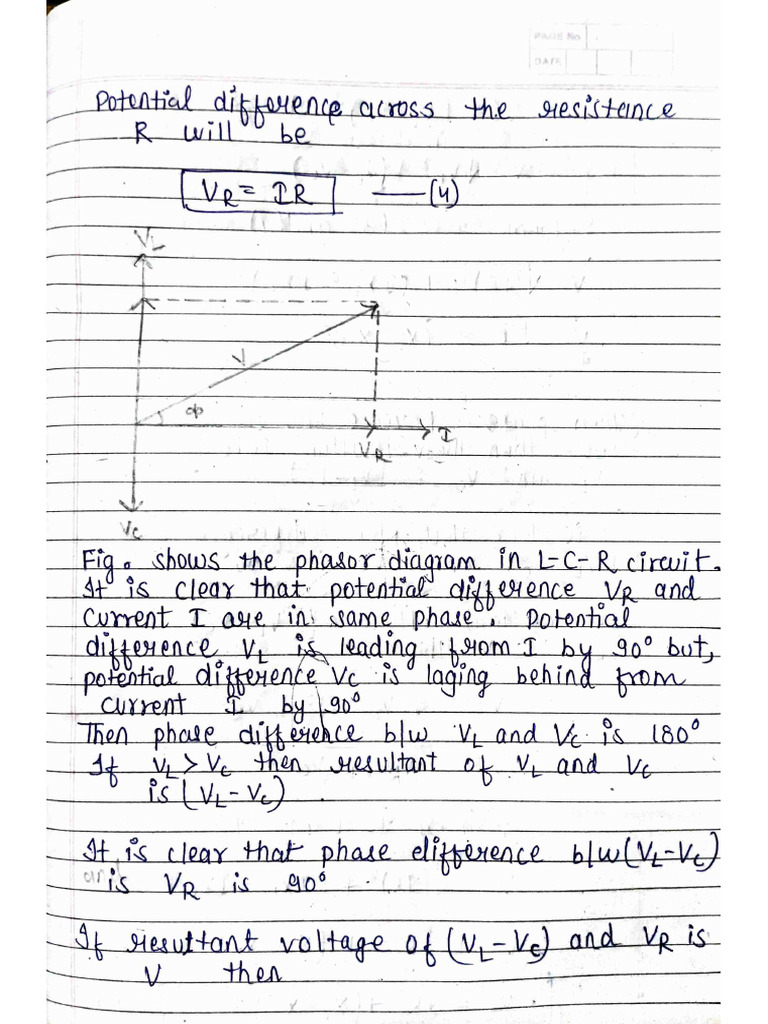 PAGE No
DATE
Potential difference across the resistance
R will be
VR = IR —— (4)
VL
V
Φ
I
VR
VC
Fig. shows the phasor diagram in L-C-R circuit.
It is clear that potential difference VR and
current I are in same phase. Potential
difference VL is leading from I by 90° but,
potential difference VC is laging behind from
current I by 90°
Then phase difference b/w VL and VC is 180°
If VL > VC then resultant of VL and VC
is (VL - VC)
It is clear that phase difference b/w (VL - VC)
is VR is 90°
If resultant voltage of (VL - VC) and VR is
V then